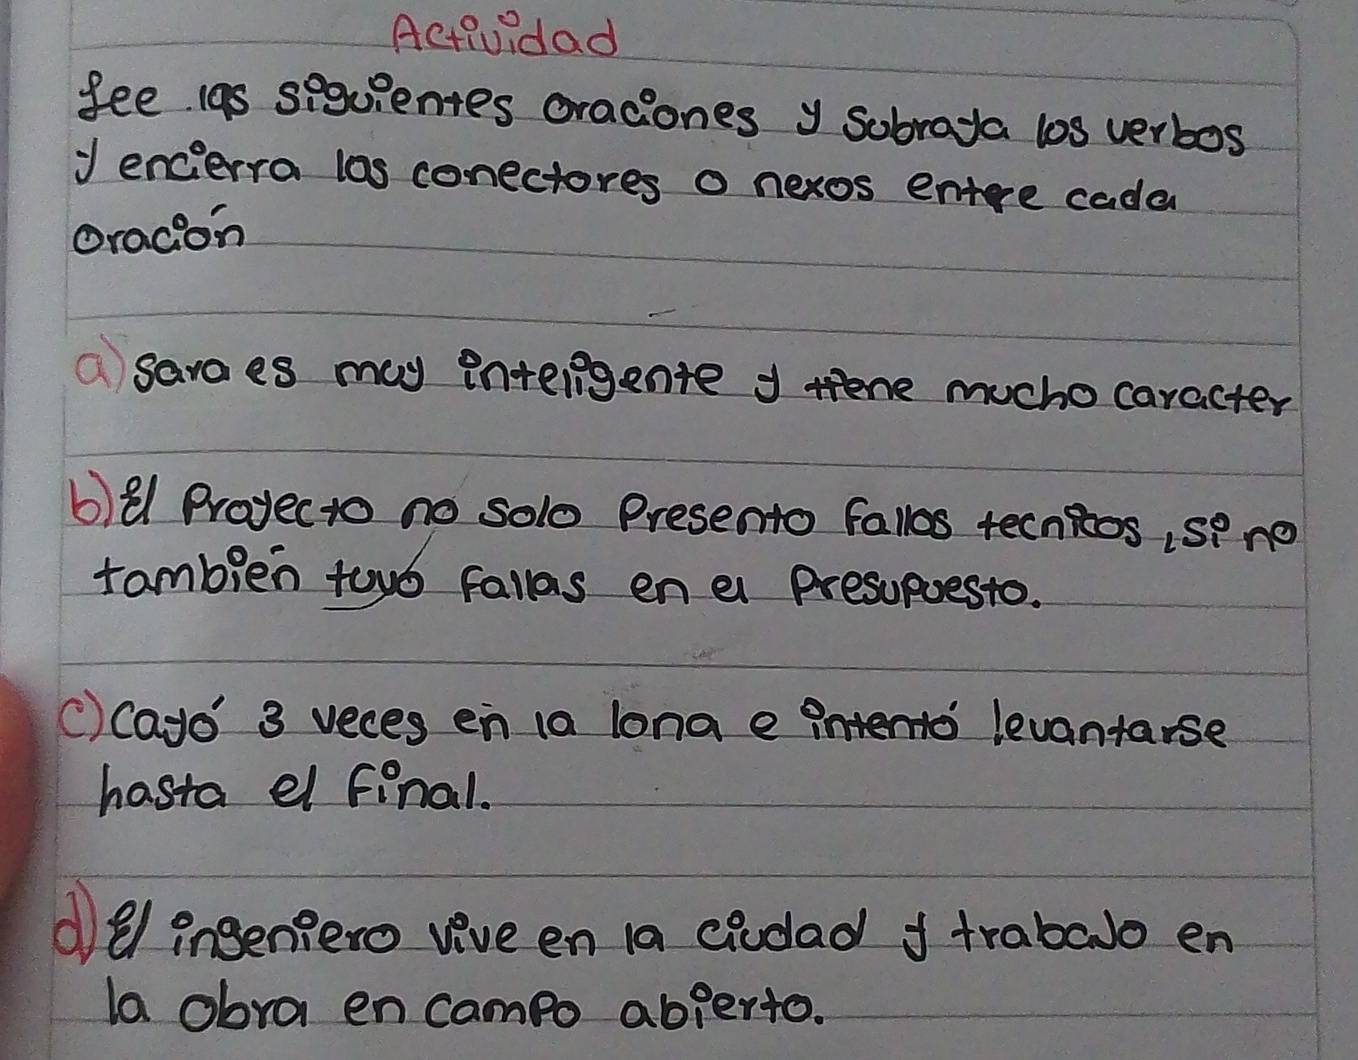 Actividad
Lee las siguientes oraciones y subraya los verbos
y encierra las conectores o nexos entre cada
oración
a) Sara es muy inteligente y tiene mucho caracter
b) El Proyecto no solo Presento fallos tecnicos, si no
también tuvó fallas en el Presupuesto.
c) Cayó 3 veces en la lona e intentó levantarse
hasta el final.
d) El ingeniero vive en la ciudad y trabajo en
la obra en campo abierto.